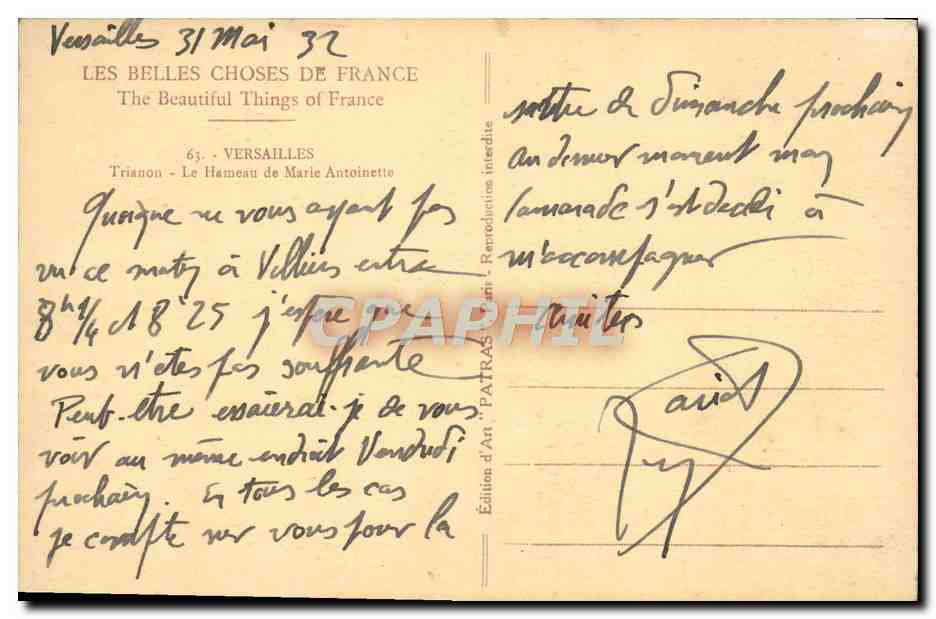 Versailles 31 Mai 32
LES BELLES CHOSES DE FRANCE
The Beautiful Things of France
63. - VERSAILLES
Trianon - Le Hameau de Marie Antoinette
Quoique ne vous ayant pas
vu ce matin à Villiers entre
8h 1/4 et 8h25 j'espère que
vous n'êtes pas souffrante
Peut-être essaierai-je de vous
voir au même endroit Vendredi
prochain. En tous les cas
je compte sur vous pour la
Édition d'Art "PATRAS" Paris - Reproduction interdite
sortie de dimanche prochain
Au dernier moment mon
camarade s'est décidé à
m'accompagner
Amitiés
CPAPHIL